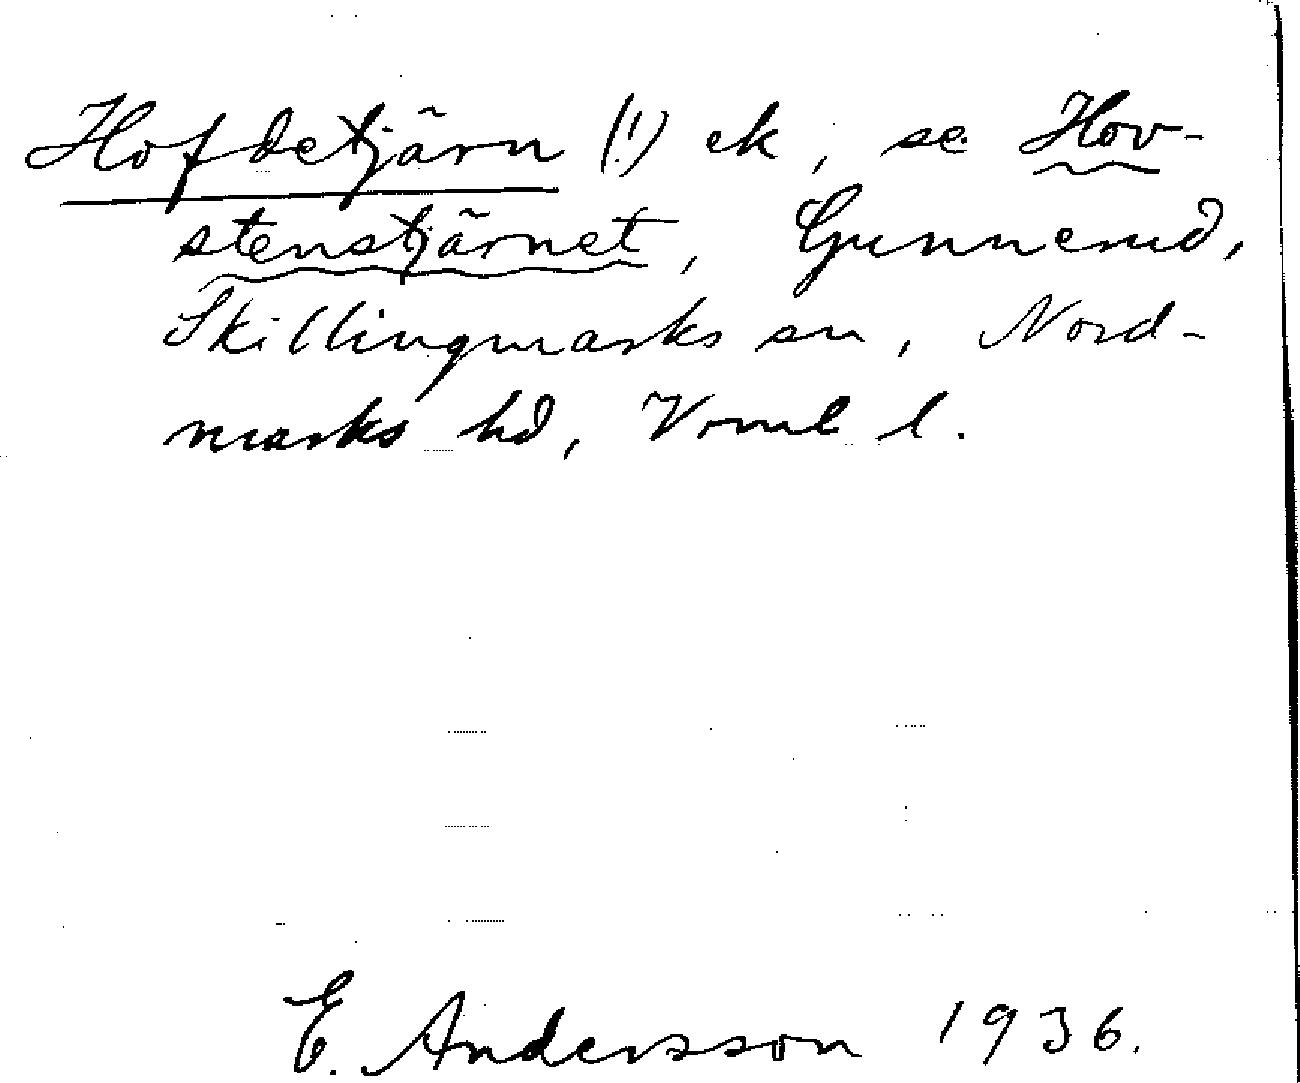 Hofdetjärn (!) ek, se Hov-
stenstjärnet, Gunnerud,
Skillingmarks sn, Nord-
marks hd, Vrml l.
E. Andersson 1936.